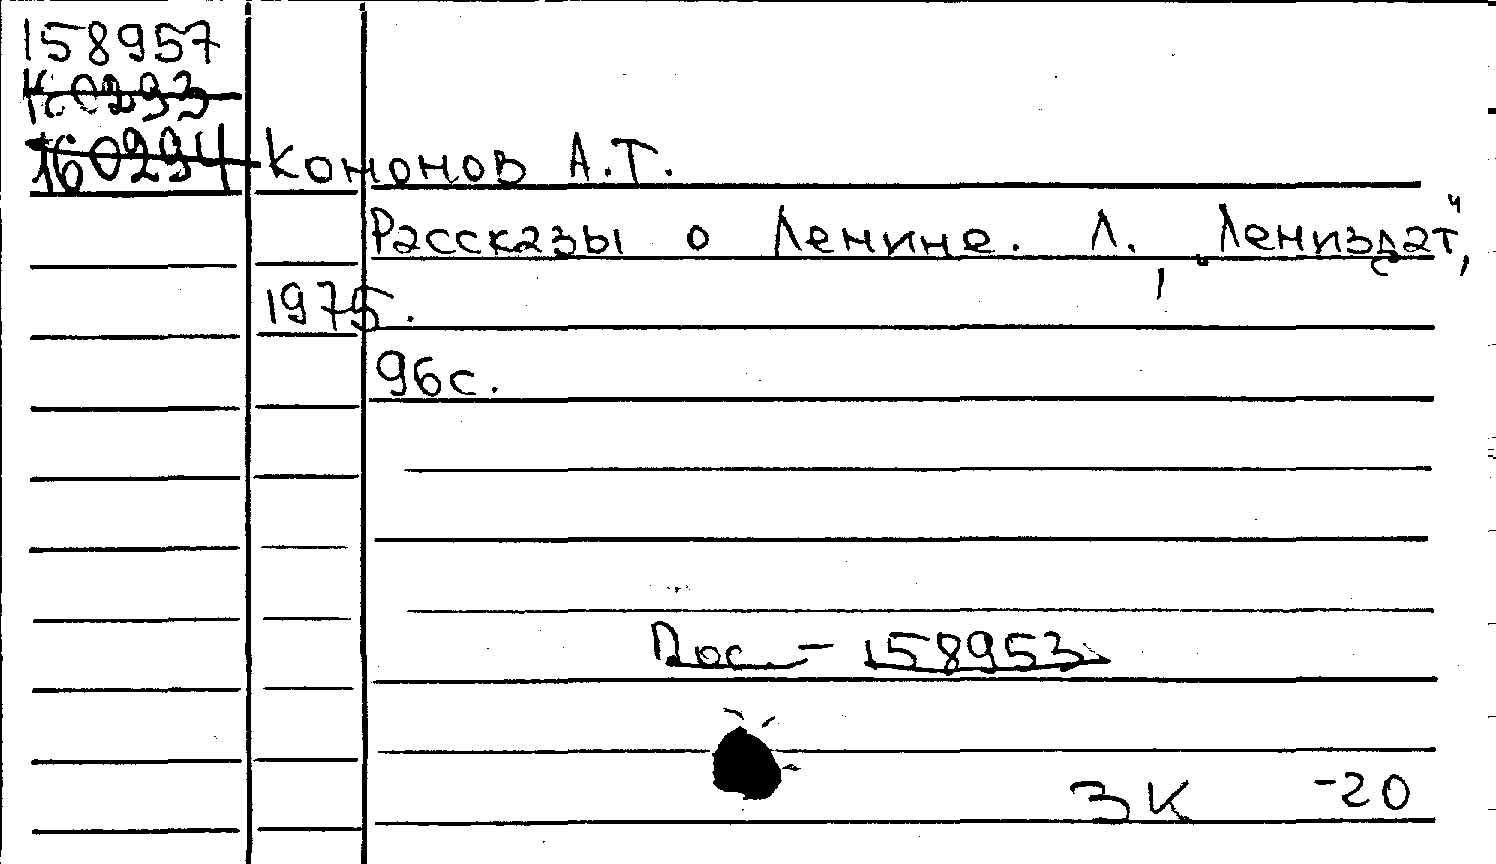 158957
160293
160294 Кононов А.Т.
Рассказы о Ленине. Л., „Лениздат“,
1975.
96с.
Пос. – 158953
ЗК -20